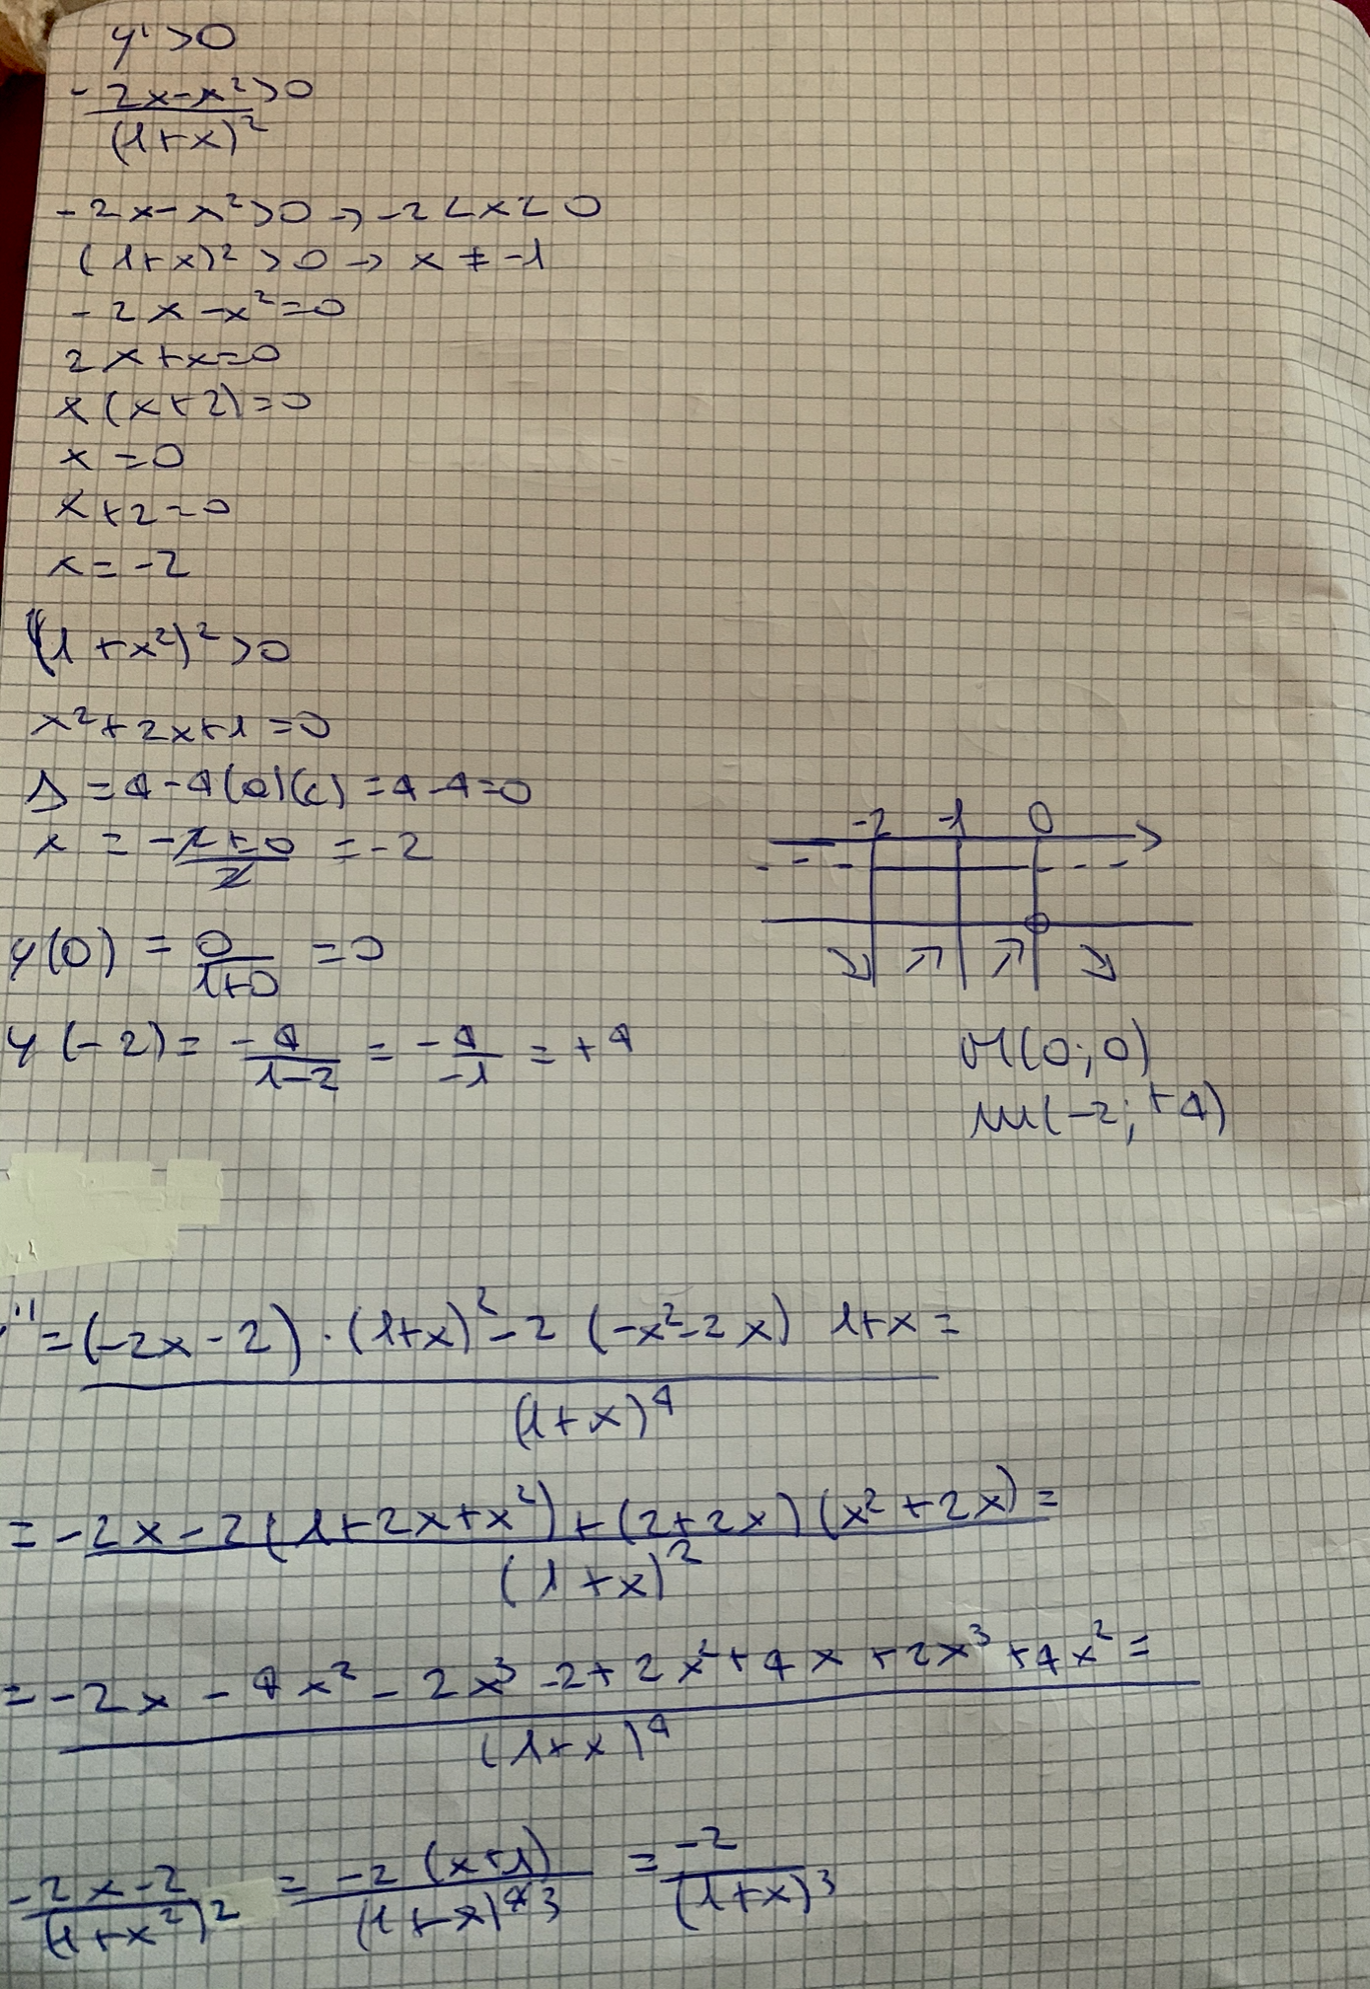 y' >0
-2x-x²>0
(1+x)²
-2x-x²>0 → -2<x<0
(1+x)²>0 → x ≠ -1
-2x-x²=0
2x+x=0
x(x+2)=0
x=0
x+2=0
x=-2
(1+x²)²>0
x²+2x+1=0
Δ=4-4(a)(c)=4-4=0
x = -2±0 = -2
2
-2 -1 0
y(0) = 0 =0
1+0
y(-2)= -4 = -4 = +4
1-2 -1
M(0;0)
m(-2;+4)
"=(-2x-2)·(1+x)²-2(-x²-2x) 1+x=
(1+x)⁴
= -2x-2(1+2x+x²)+(2+2x)(x²+2x)=
(1+x)²
= -2x-4x²-2x³-2+2x²+4x+2x³+4x²=
(1+x)⁴
-2x-2 = -2(x+1) = -2
(1+x²)² (1+x)³ (1+x)³